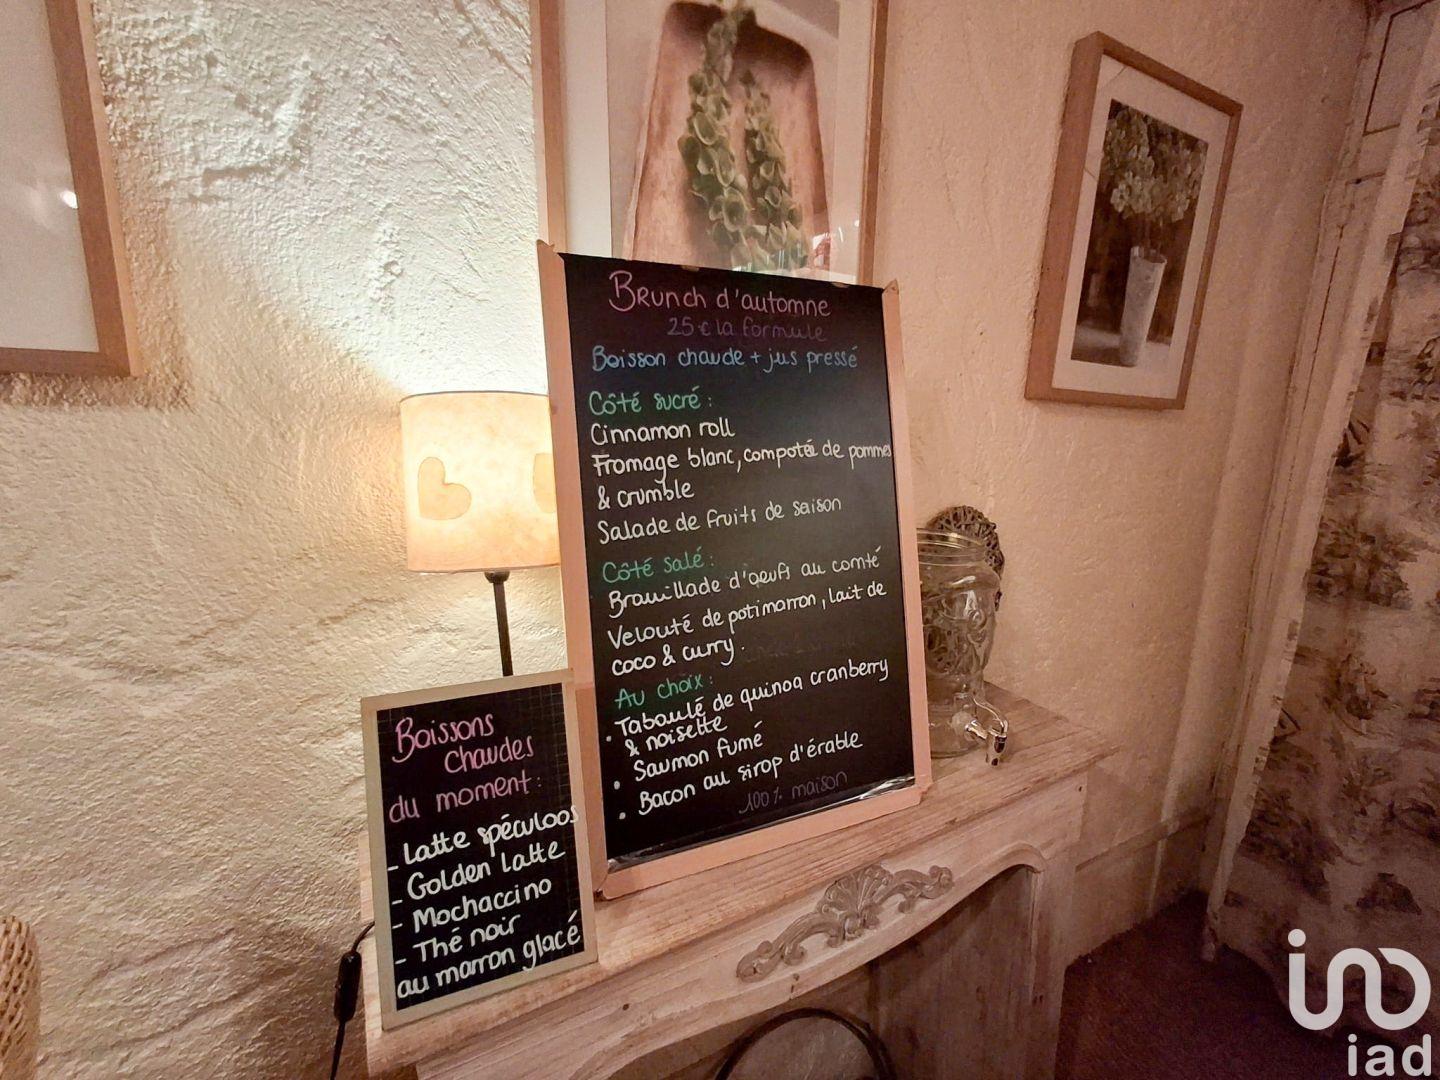 Brunch d'automne
25€ la formule
Boisson chaude + jus pressé
Côté sucré :
Cinnamon roll
Fromage blanc, compotée de pommes
& crumble
Salade de fruits de saison
Côté salé :
Brouillade d'oeufs au comté
Velouté de potimarron, lait de
coco & curry.
Au choix :
• Taboulé de quinoa cranberry
& noisette
• Saumon fumé
• Bacon au sirop d'érable
100% maison
Boissons
chaudes
du moment :
- Latte spéculoos
- Golden latte
- Mochaccino
- Thé noir
au marron glacé
iad